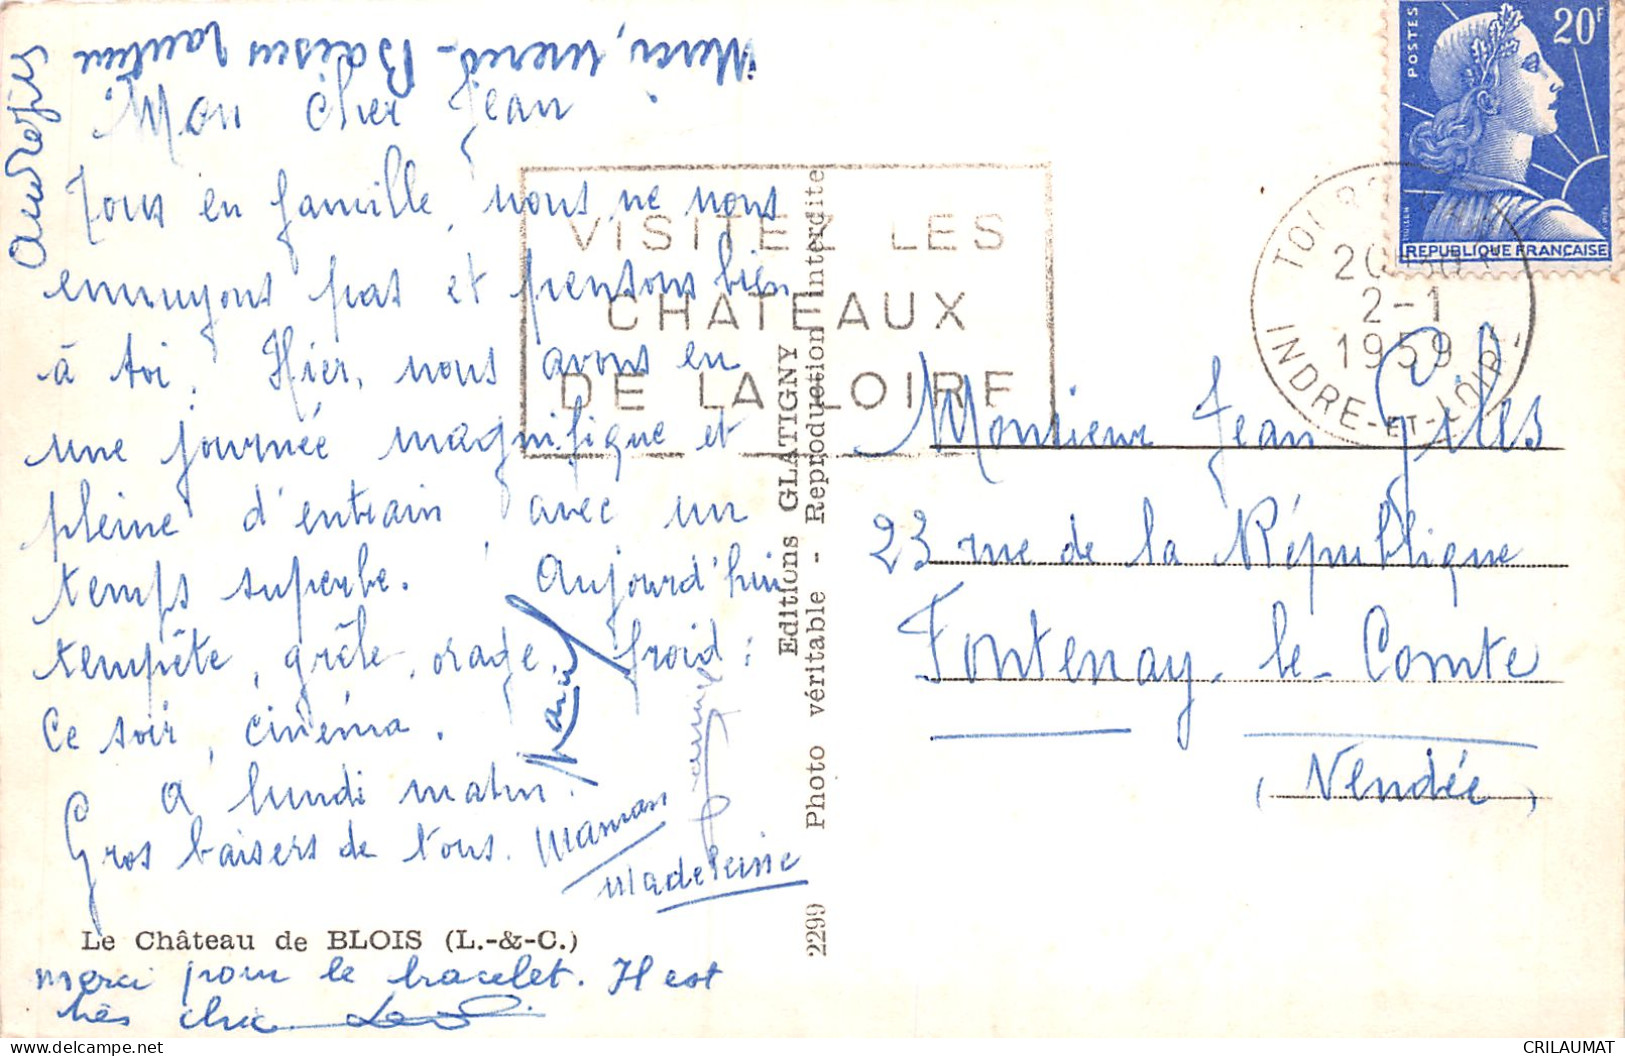 Merci, merci - Baisers
Mon cher Jean
Tous en famille, nous ne nous
ennuyons pas et pensons bien
à toi. Hier, nous avons eu
une journée magnifique et
pleine d'entrain, avec un
temps superbe. Aujourd'hui
tempête, grêle, orage, froid :
Ce soir, cinéma.
A lundi matin.
Gros baisers de tous. Maman
Madeleine
Le Château de BLOIS (L.-&-C.)
merci pour le bracelet. Il est
très chic
VISITEZ LES
CHATEAUX
DE LA LOIRE
2299 Photo véritable - Reproduction interdite
Editions GLATIGNY
POSTES
20F
REPUBLIQUE FRANÇAISE
2-1
1959
INDRE-ET-LOIRE
Monsieur Jean Gilles
23 rue de la République
Fontenay-le-Comte
(Vendée)
CRILAUMAT